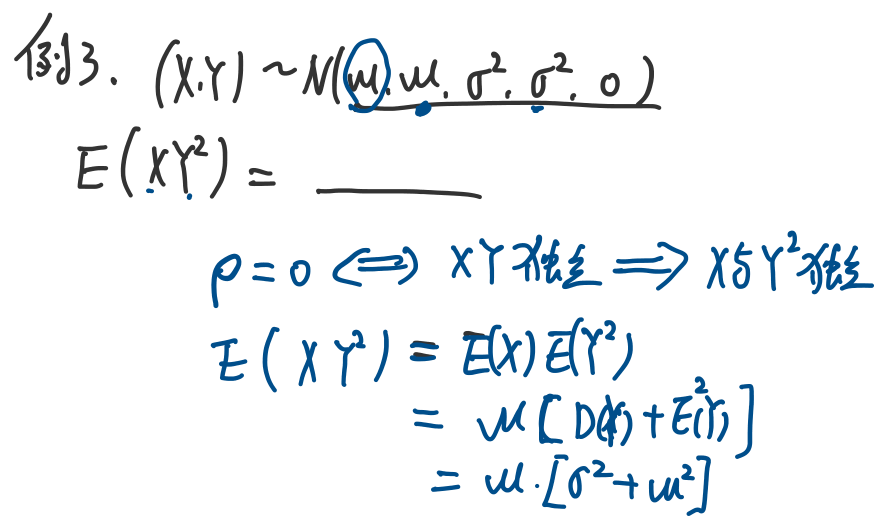 例3. (X.Y) ~ N(μ. μ. σ². σ². 0)
E(XY²) = ____
ρ = 0 ⟺ XY独立 ⟹ X与Y²独立
E(XY²) = E(X)E(Y²)
= μ[D(Y)+E²(Y)]
= μ·[σ²+μ²]